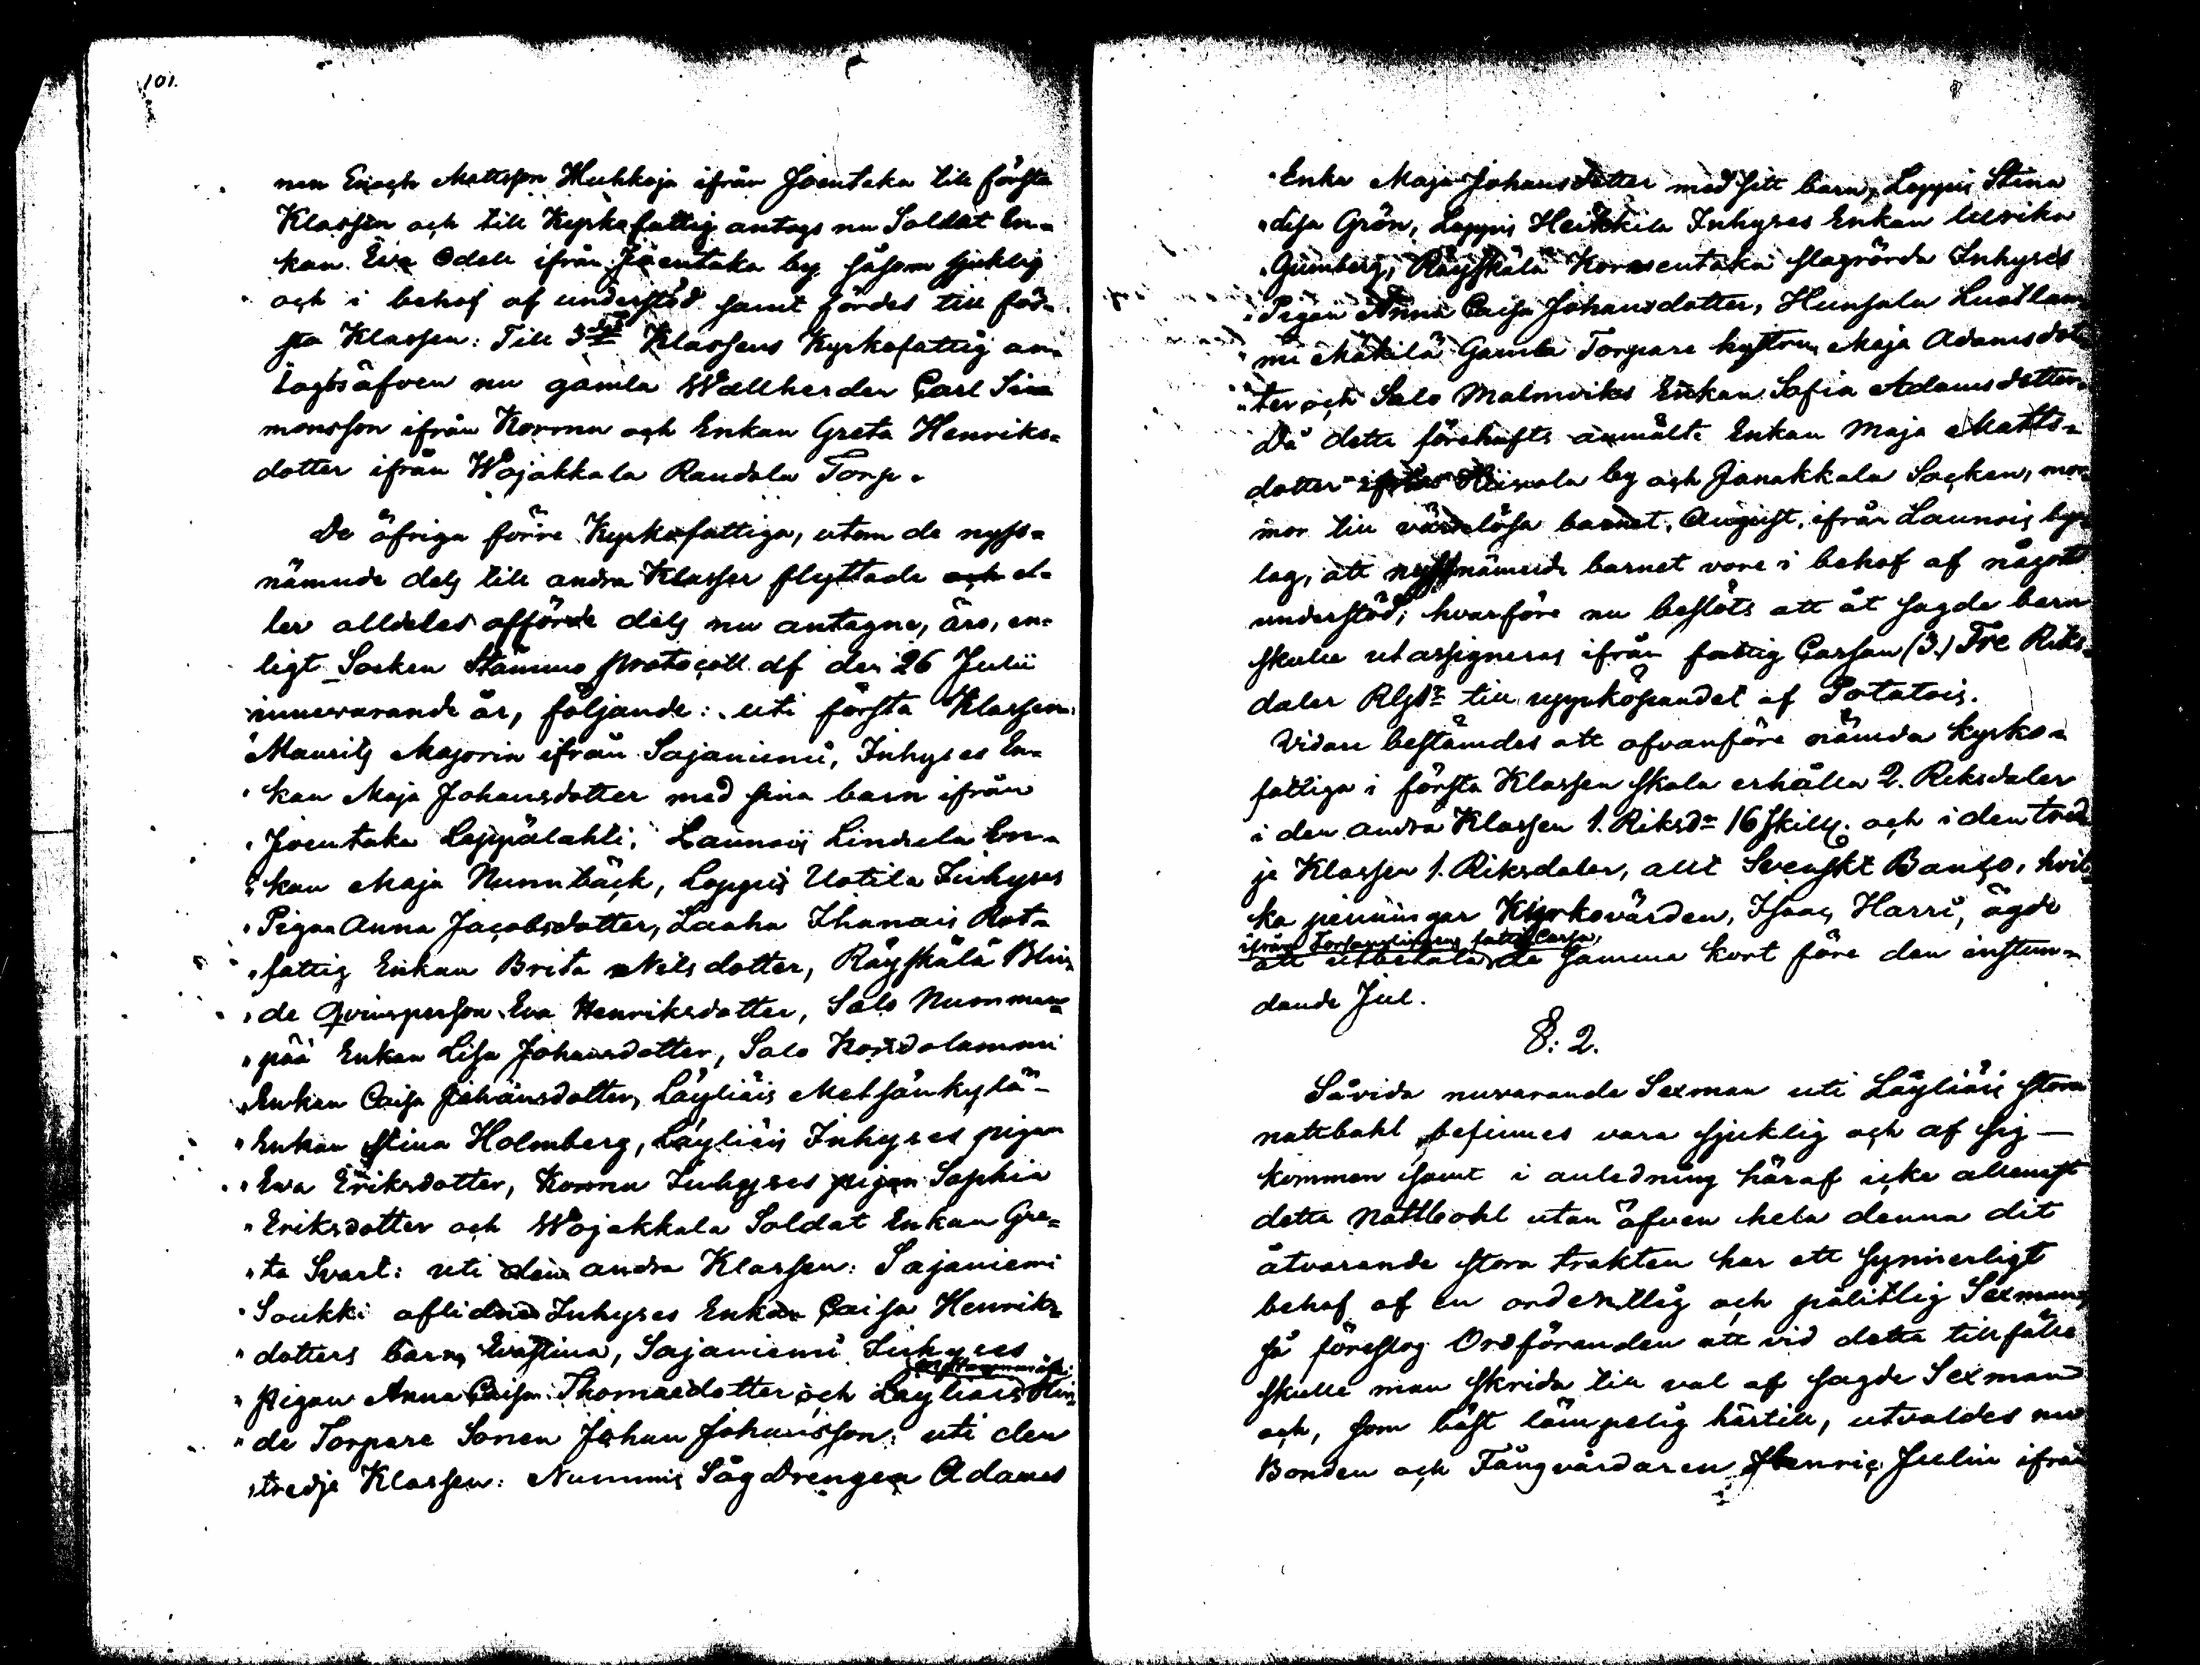 101.
nen Enoch Mattsson Huhkoja ifrån Joentaka till första
Klassen och till Kyrkofattig antogs nu Soldat En-
kan Eva Odell ifrån Joentaka by såsom sjuklig
och i behof af understöd samt fördes till för-
sta Klassen: Till 3dje Klassens Kyrkofattig an-
togs äfven nu gamla Wallherden Carl Si-
monsson ifrån Kormu och Enkan Greta Henriks-
dotter ifrån Wojakkala Randala Torp.
De öfriga förre Kyrkofattiga, utom de nyss-
nämnde dels till andra Klasser flyttade och el-
ler alldeles afförde dels nu antagne, äro, en-
ligt Socken Stämmo protocoll af den 26 Julii
innevarande år, följande: uti första Klassen:
Maurits Majorin ifrån Sajaniemi, Inhyses En-
" kan Maja Johansdotter med sina barn ifrån
" Joentaka Leppälahti, Launois Lindula En-
" kan Maja Nummbäck, Loppis Uotila Inhyses
" Pigan Anna Jacobsdotter, Laaha Ihanais Rot-
" fattig Enkan Brita Nilsdotter, Räyskälä Blin-
" de Qvinsperson Eva Henriksdotter, Salo Nummen-
" pää Enkan Lisa Johansdotter, Salo Kordolammi
" Enkan Caisa Johansdotter, Läyliäis Metsänkylä-
" Enkan Stina Holmberg, Läyliäis Inhyses pigan
" Eva Eriksdotter, Kormu Inhyses pigan Sophia
" Eriksdotter och Wojakkala Soldat Enkan Gre-
" ta Svart: uti den andra Klassen: Sajaniemi
" Soukki aflidne Inhyses Enkan Caisa Henriks-
" dotters barn, Evastina, Sajaniemi Inhyses
" pigan Anna Caisa Thomasdotter och Läyliäis Blin-
" de Torpare Sonen Johan Johansson: uti den
" tredje Klassen: Nummis Sågdrengen Adams
" Enka Maja Johansdotter med sitt barn, Loppis Stina
" disa Grön, Loppis Heikkilä Inhyses Enkan Ulrika
" Gumberg, Räyskälä Kornentaka slagrörda Inhyses
" Pigan Anna Caisa Johansdotter, Hunsala Luotlam-
" mi Mäkilä Gamla Torpare hustrun Maja Adamsdot-
" ter och Salo Malmviks Enkan Sofia Adamsdotter.
Då detta förehafts anmälte Enkan Maja Matts-
dotter ifrån Hiivola by och Janakkala Socken, mor-
mor till värdelösa barnet, August, ifrån Launois by-
lag, att nyssnämnde barnet vore i behof af något
understöd, hvarföre nu beslöts att åt sagde barn
skulle utassigneras ifrån fattig Cassan (3.) Tre Riks-
daler Rgds till uppköpandet af Potatois.
Vidare bestämdes att ofvanföre nämda kyrko-
fattiga i första Klassen skola erhålla 2. Riksdaler
i den andra Klassen 1. Riksdr 16 skill. och i den tred-
je Klassen 1. Riksdaler, allt Svenskt Banco, hvil-
ka penningar Kyrkovärden, Isaac Harri, ägde
ifrån Församlingens fattig Cassa,
att utbetala de samma kort före den instun-
dande Jul.
§: 2.
Såvida nuvarande Sexman uti Läyliäis stora
nattebohl befinnes vara sjuklig och af sig –
kommen samt i anledning häraf icke allenast
detta Nattbohl utan äfven hela denna dit
åtvarande stora trakten har ett synnerligt
behof af en ordentlig och pålitlig Sexman,
så föreslog Ordföranden att vid detta tillfälle
skulle man skrida till val af sagde Sexman
och, som bäst lämpelig härtill, utvaldes nu
Bonden och Tångvärdaren Henric Julin ifrån